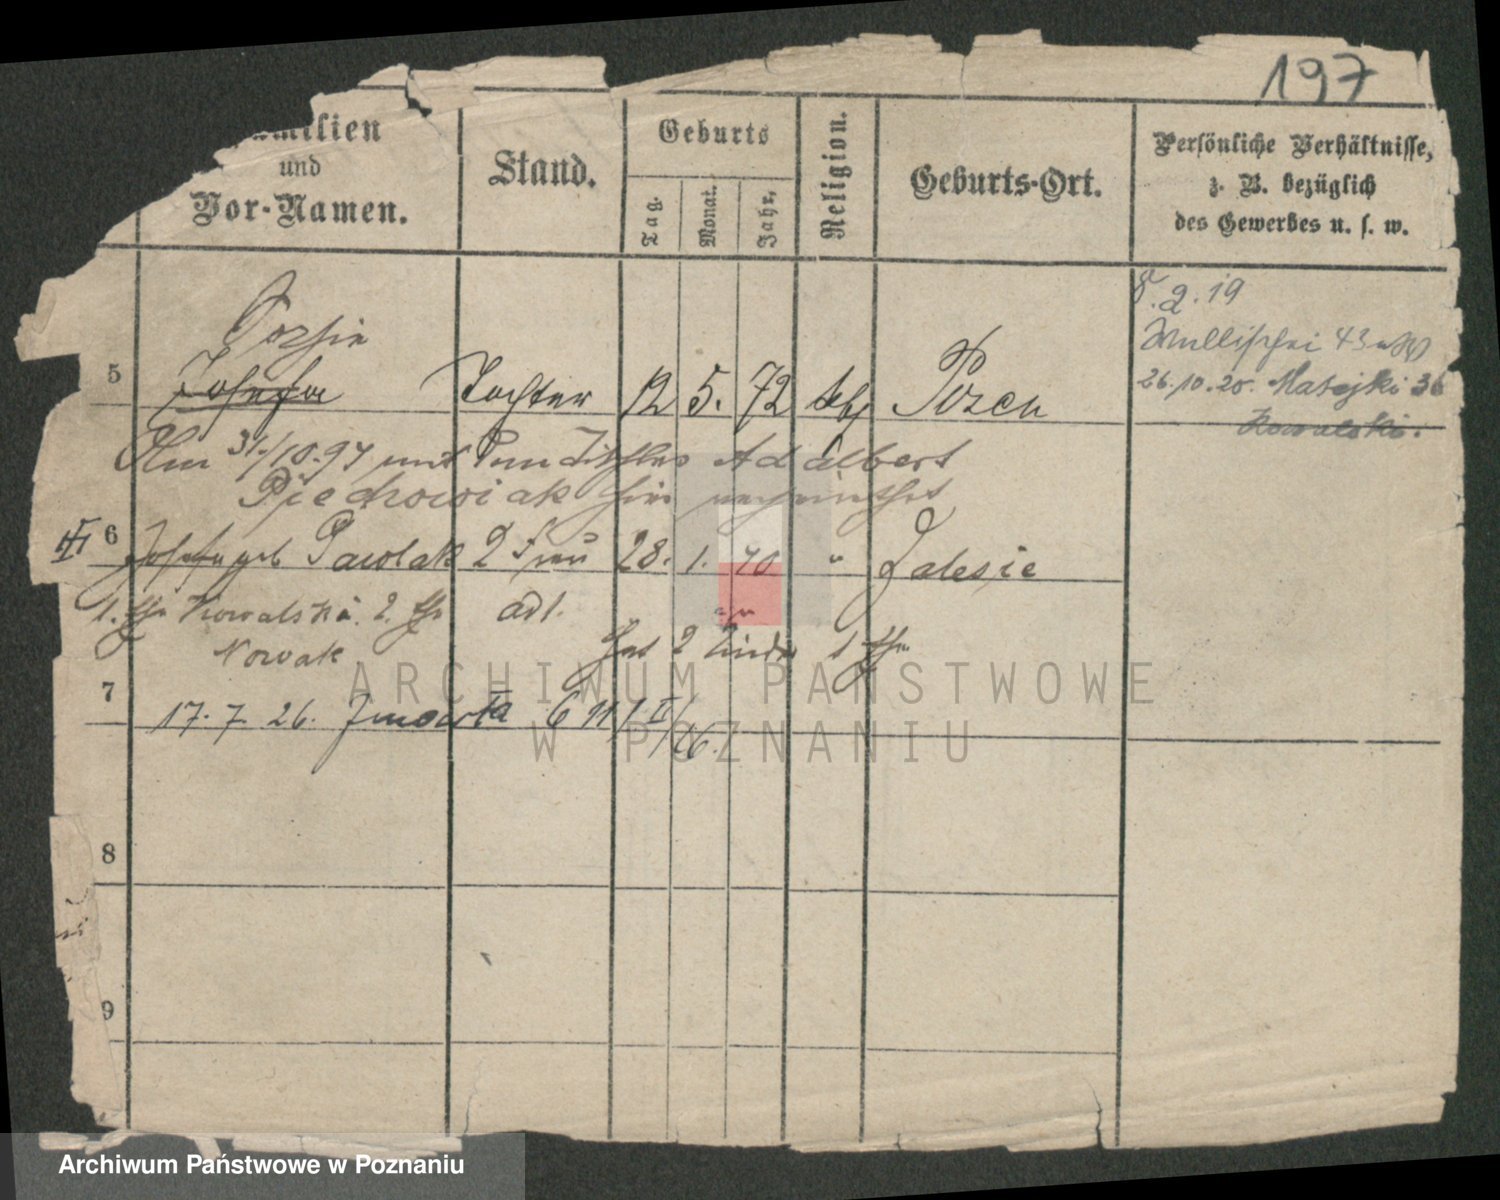 197
und
Vor-Namen.
Stand.
Geburts
Tag.
Monat.
Jahr,
Religion.
Geburts-Ort.
Persönliche Verhältnisse,
z. B. bezüglich
des Gewerbes u. s. w.
8.2.19
43
26.10.20. Matejki 36
Kowalski.
5 Josefa Tochter 12 5. 72 kth Posen
Am 31./10.97 mit dem Tischler Adalbert
Piechowiak hier verheirathet
III 6 Josefa geb Pawlak 2 Frau 28. 1. 70 " Zalesie
1. Ehe Kowalski. 2. Ehe
Nowak
hat 2 Kinder 1 Ehe
7
17.7.26. Zmarła
8
9
ARCHIWUM PAŃSTWOWE
W POZNANIU
Archiwum Państwowe w Poznaniu